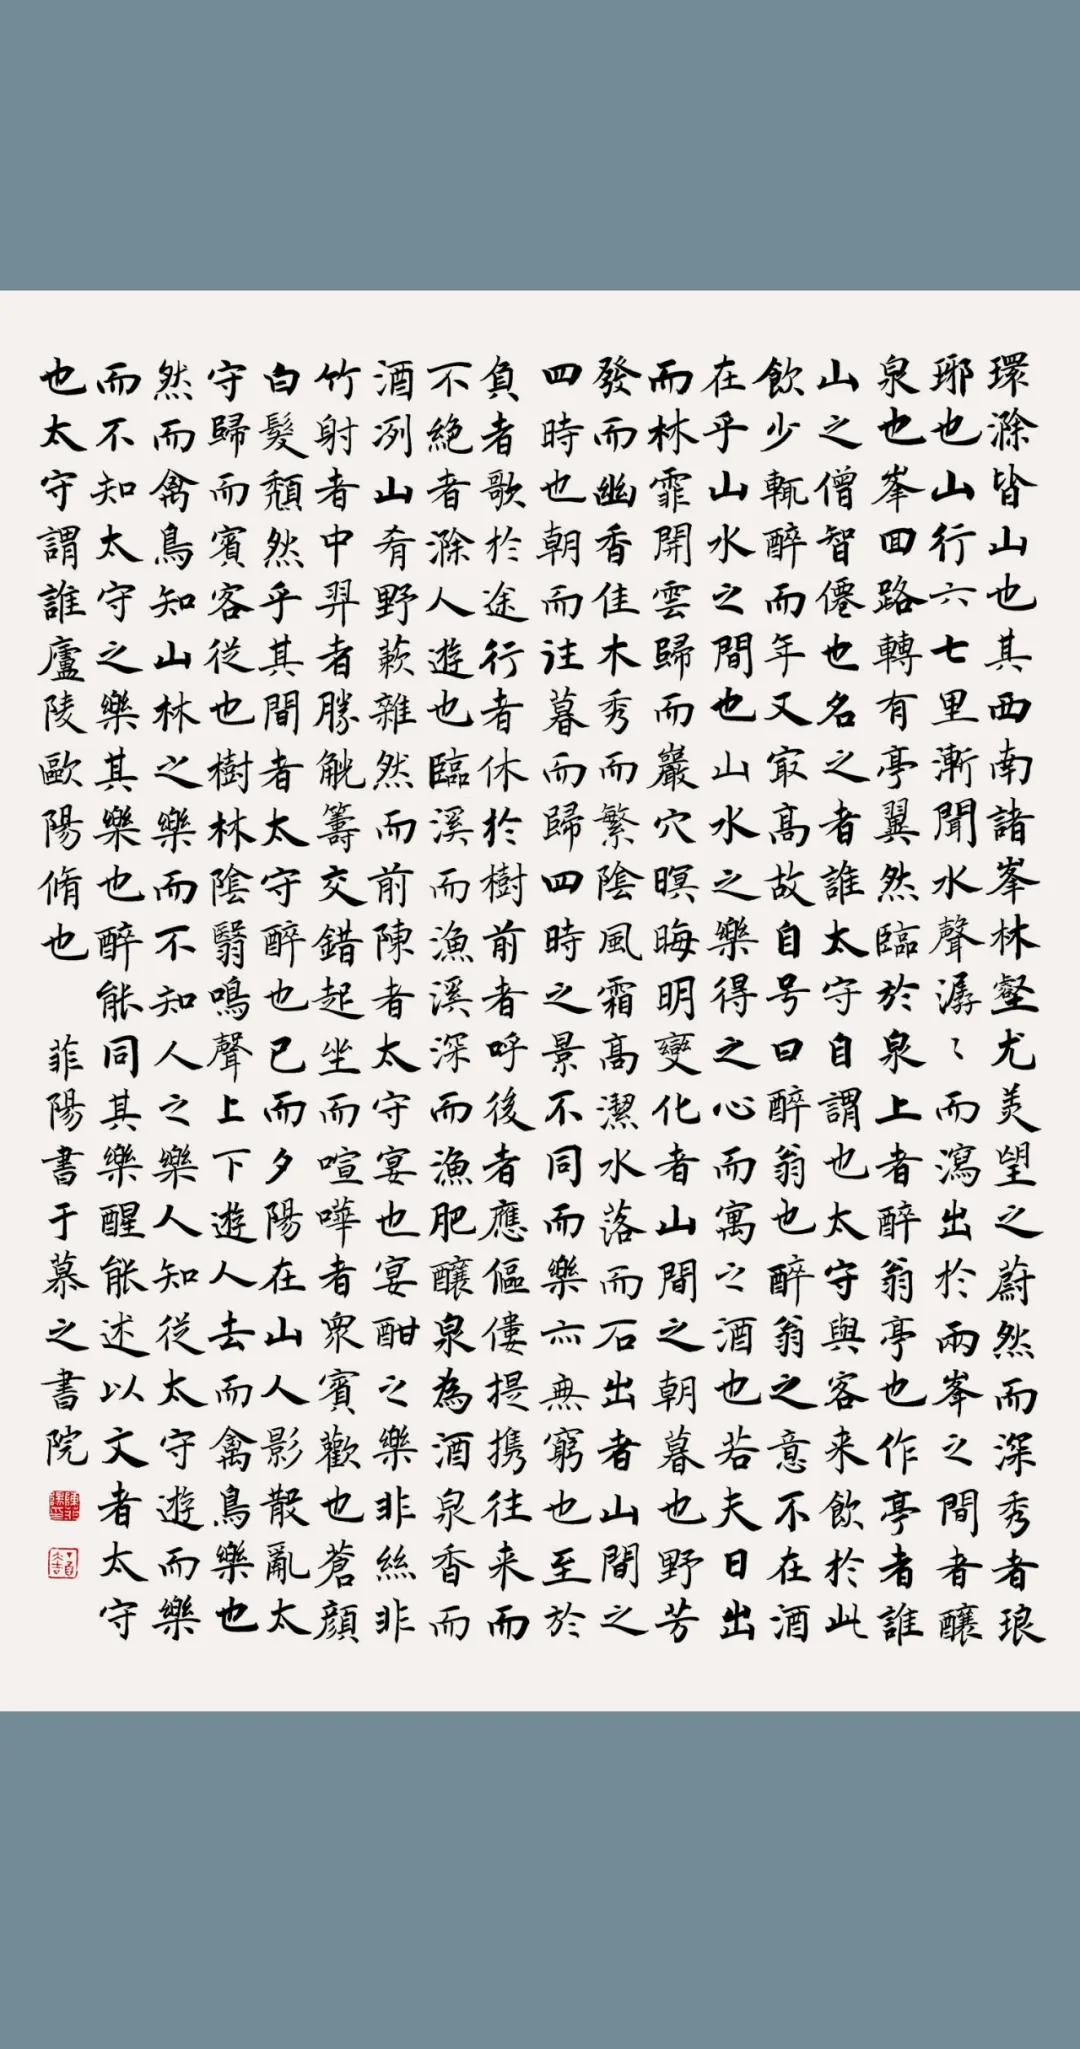 環滁皆山也其西南諸峯林壑尤美望之蔚然而深秀者琅
耶也山行六七里漸聞水聲潺〻而瀉出於兩峯之間者釀
泉也峯回路轉有亭翼然臨於泉上者醉翁亭也作亭者誰
山之僧智僊也名之者誰太守自謂也太守與客来飲於此
飲少輒醉而年又冣高故自号曰醉翁也醉翁之意不在酒
在乎山水之間也山水之樂得之心而寓之酒也若夫日出
而林霏開雲歸而巖穴暝晦明變化者山間之朝暮也野芳
發而幽香佳木秀而繁陰風霜高潔水落而石出者山間之
四時也朝而往暮而歸四時之景不同而樂亦無窮也至於
負者歌於途行者休於樹前者呼後者應傴僂提携往来而
不絶者滁人遊也臨溪而漁溪深而漁肥釀泉為酒泉香而
酒洌山肴野蔌雜然而前陳者太守宴也宴酣之樂非絲非
竹射者中羿者勝觥籌交錯起坐而喧嘩者衆賓歡也蒼顔
白髮頽然乎其間者太守醉也已而夕陽在山人影散亂太
守歸而賓客従也樹林陰翳鳴聲上下遊人去而禽鳥樂也
然而禽鳥知山林之樂而不知人之樂人知従太守遊而樂
而不知太守之樂其樂也醉能同其樂醒能述以文者太守
也太守謂誰廬陵歐陽脩也 菲陽書于慕之書院